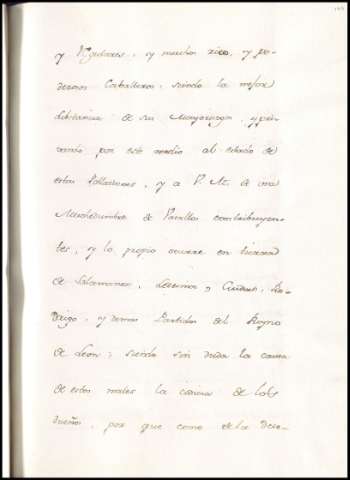 y Regulares, y muchos ricos, y po-
derosos Caballeros, siendo la mejor
de su Mayorazgo, y pri-
por este medio al estado de
estos Labradores, y a V. M. de una
Muchedumbre de Vasallos contribuyen-
tes, y lo propio ocurre en tierra
de Salamanca, Ledesma, y Ciudad-Ro-
drigo, y demas Partidos del Reyno
de Leon; siendo sin duda la causa
de estos males la codicia de los
dueños, por que como de la